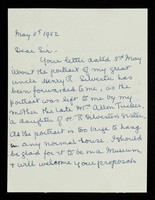 May 8th 1952
Dear Sir.
Your letter dated 5th May
about the portrait of my great
uncle Henry T. Silvester has
been forwarded to me, as the
portrait was left to me by my
mother the late Mrs Allen Tucker,
a daughter of H T Silvester's sister,
As the portrait is too large to hang
in any normal house. I should
be glad for it to be in a Museum
& will welcome your proposals